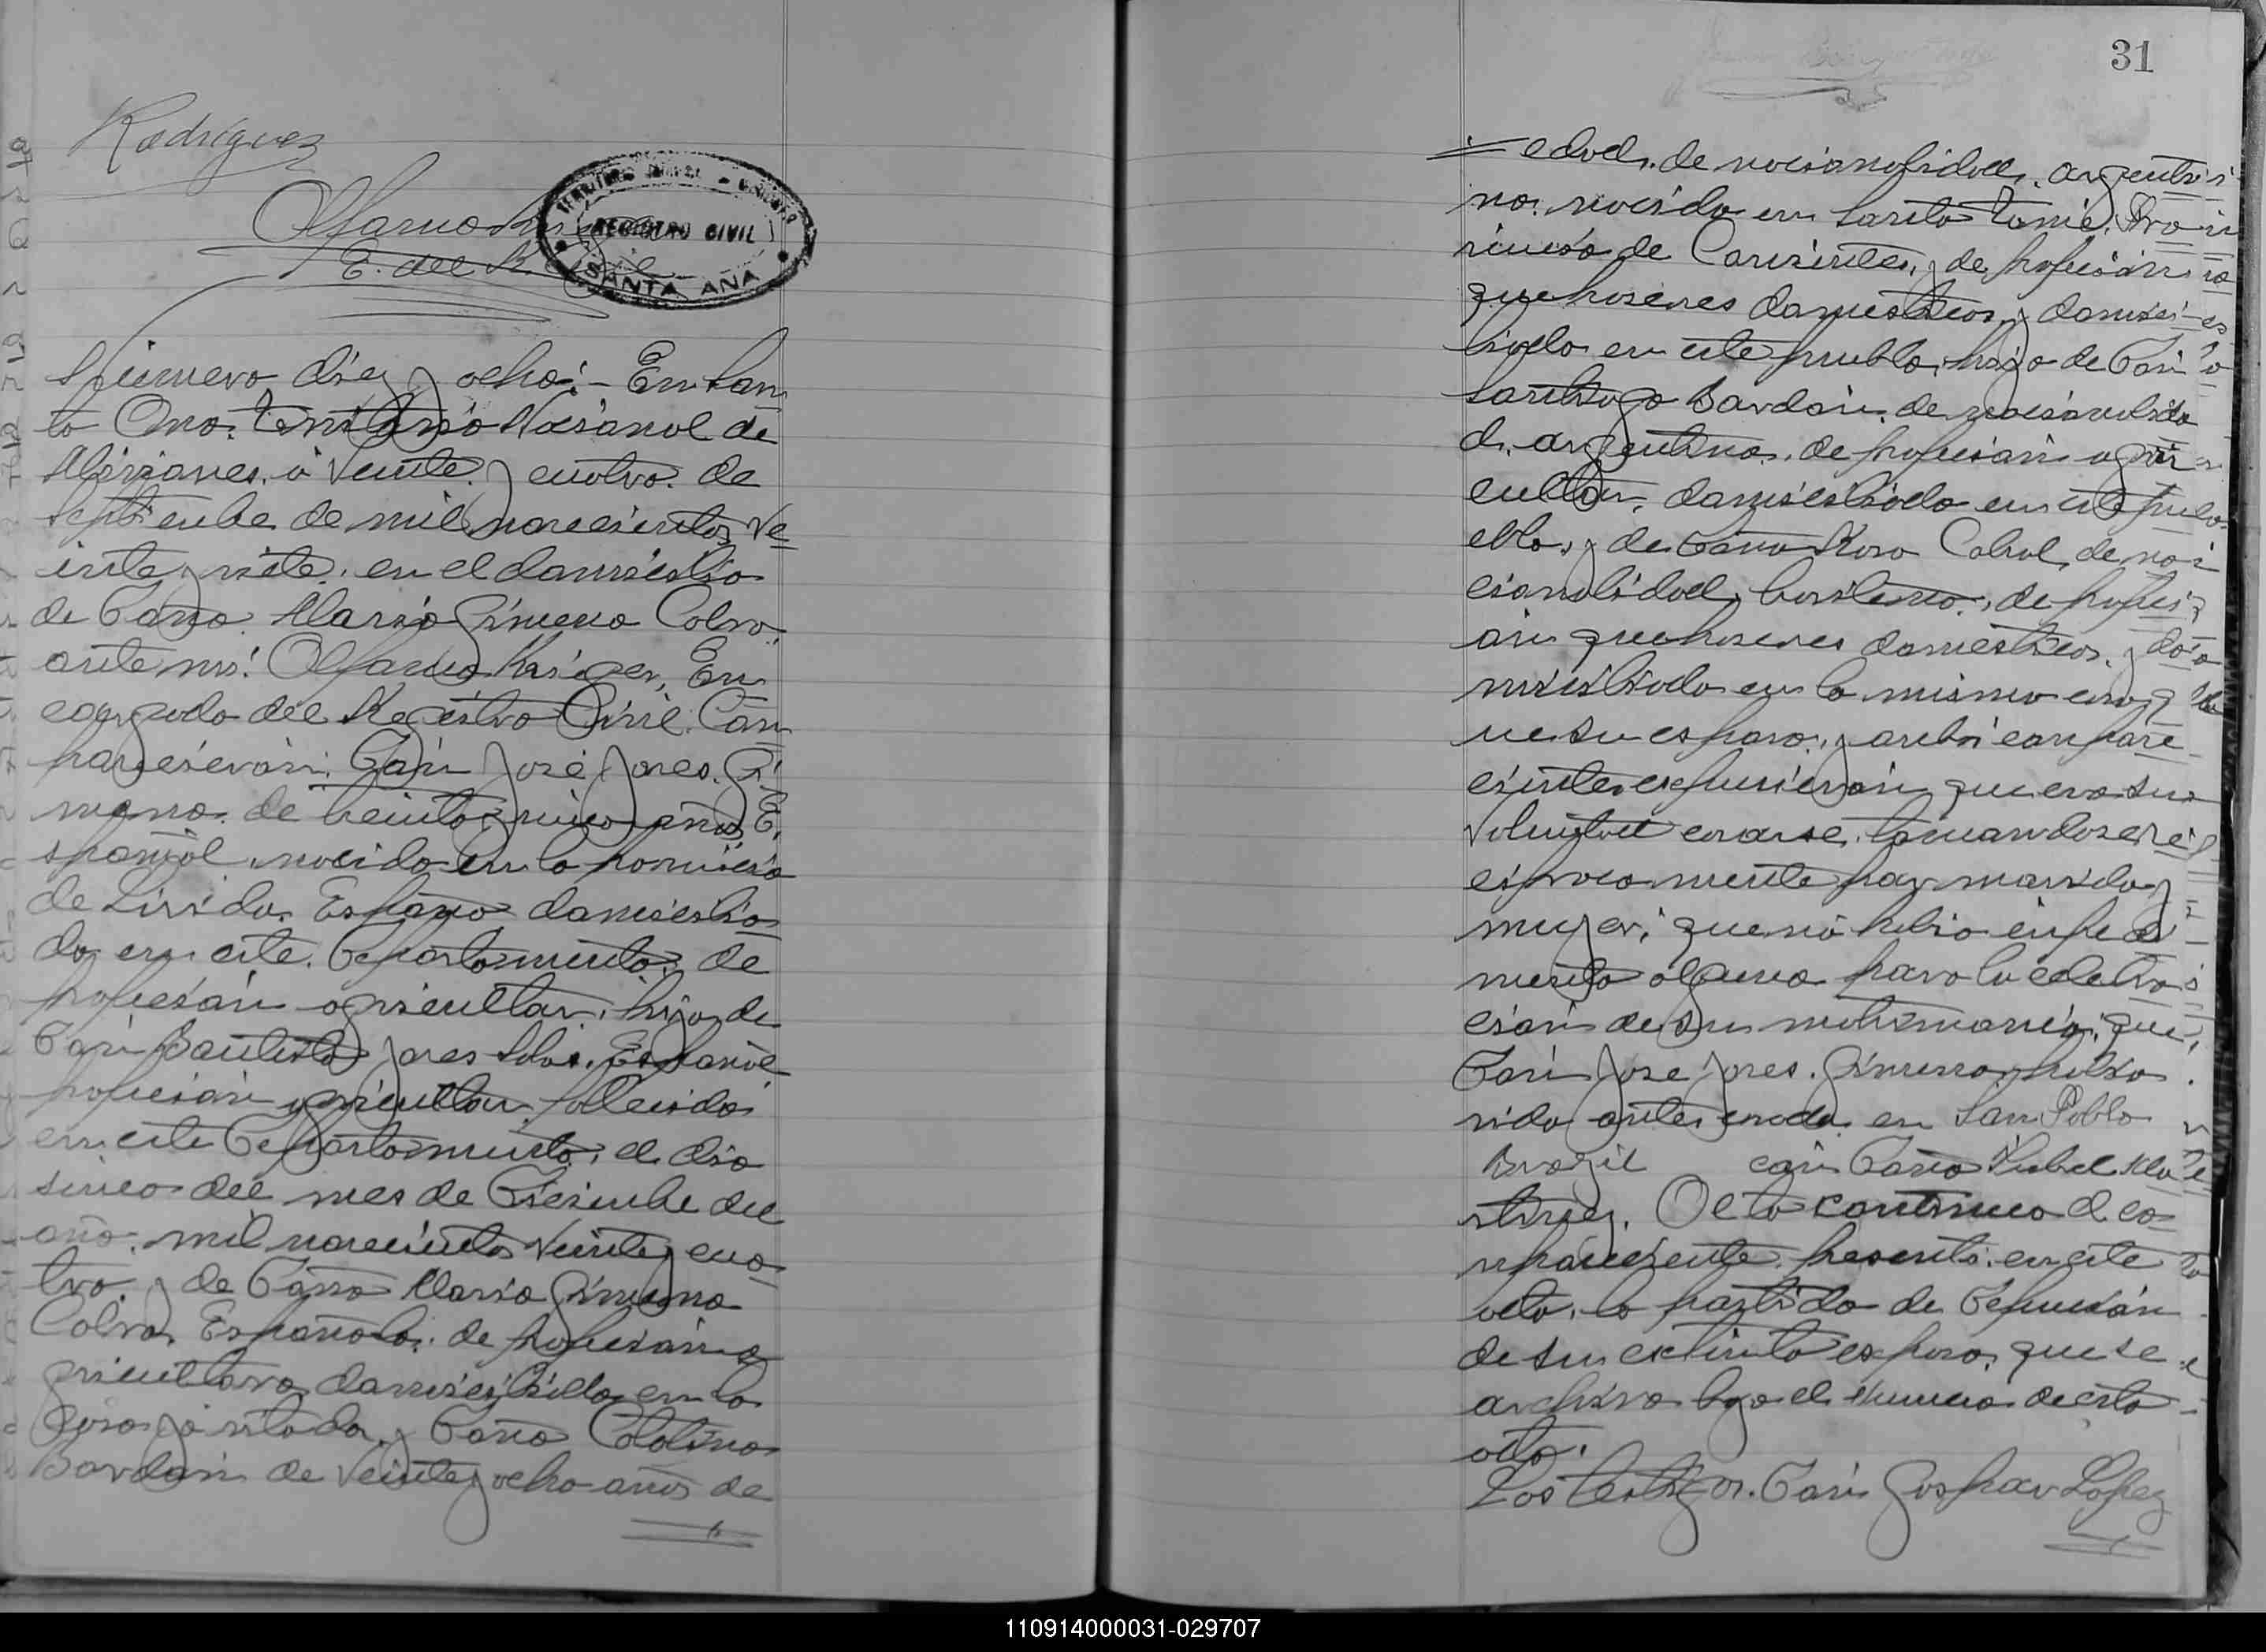 Rodriguez
Alfano
E. del R. Civil
TERRITORIO NACIONAL - MISIONES
REGISTRO CIVIL
SANTA ANA
Número diez y ocho:- En San
ta Ana. Territorio Nacional de
Misiones, á veinte y cuatro de
Septiembre de mil novecientos ve
inte y siete, en el domicilio
de Doña Maria Gimeno Colvo.
ante mi: Alfano Kriger, En
cargado del Registro Civil. Com
parecieron: Don José Jores Gi
meno de treinta y cinco años, E
spañol, nacido en la provincia
de Lirida, España domicilia
do en este Departamento, de
profesión agricultor, hijo de
Don Bautista Jores Silos. Español
profesión agricultor, fallecido
en este Departamento, el dia
sinco del mes de Diciembre del
año, mil novecientos veinte y cua
tro, y de Doña Maria Gimeno
Colvo, Española, de profesión a
gricultora domiciliada en la
casa ya citada, y Doña Catalina
Bordon de veinte y ocho años de
31
edad, de nacionalidad, argenti
na, nacida en Santo Tomé, Pro
vincia de Corrientes, de profesión
quehaseres domesticos, y domici
liada en este pueblo, hija de Don
Santiago Bordon, de nacionalida
d, argentina, de profesión agri
cultor, domiciliado en este pu
eblo, y de Doña Rosa Cabral, de na
cionalidad, brasilera, de profesi
ón quehaseres domesticos, y do
miciliada en la misma casa q
ue su esposo, y ambos compare
cientes expusieron que era su
voluntad casarse, tomandose re
ciprocamente por marido y
mujer, que no habia impedi
mento alguno para la celebra
ción de su matrimonio, que
Don José Jores Gimeno habia
sido antes casado en San Pablo
Brazil con Doña Isabel Ma
rtinez. Acto continuo el co
mpareciente presentó en este
acto, la partida de defunción
de su extinta esposa, que se
archiva bajo el numero de esta
acta.
Los testigos, Don Gaspar Lopez
110914000031-029707